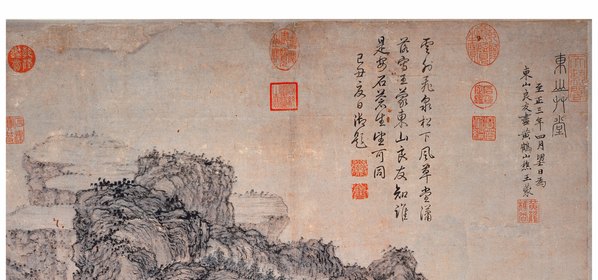 東山艸堂
至正三年四月望日為
東山良友畫黃鶴山樵王蒙
雲外飛泉松下風草堂瀟
落寫王蒙東山良友知誰
是安石蒼生望可同
己丑夏日御題